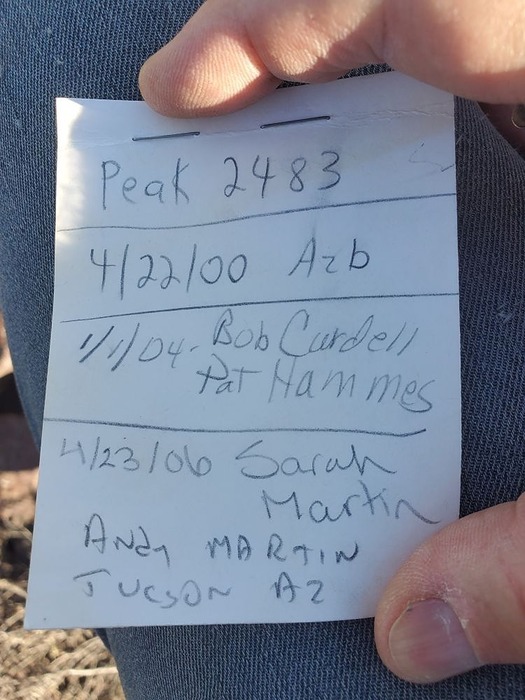 Peak 2483
4/22/00 Azb
1/1/04- Bob Cardell
Pat Hammes
4/23/06 Sarah
Martin
Andy MARTIN
TUCSON AZ